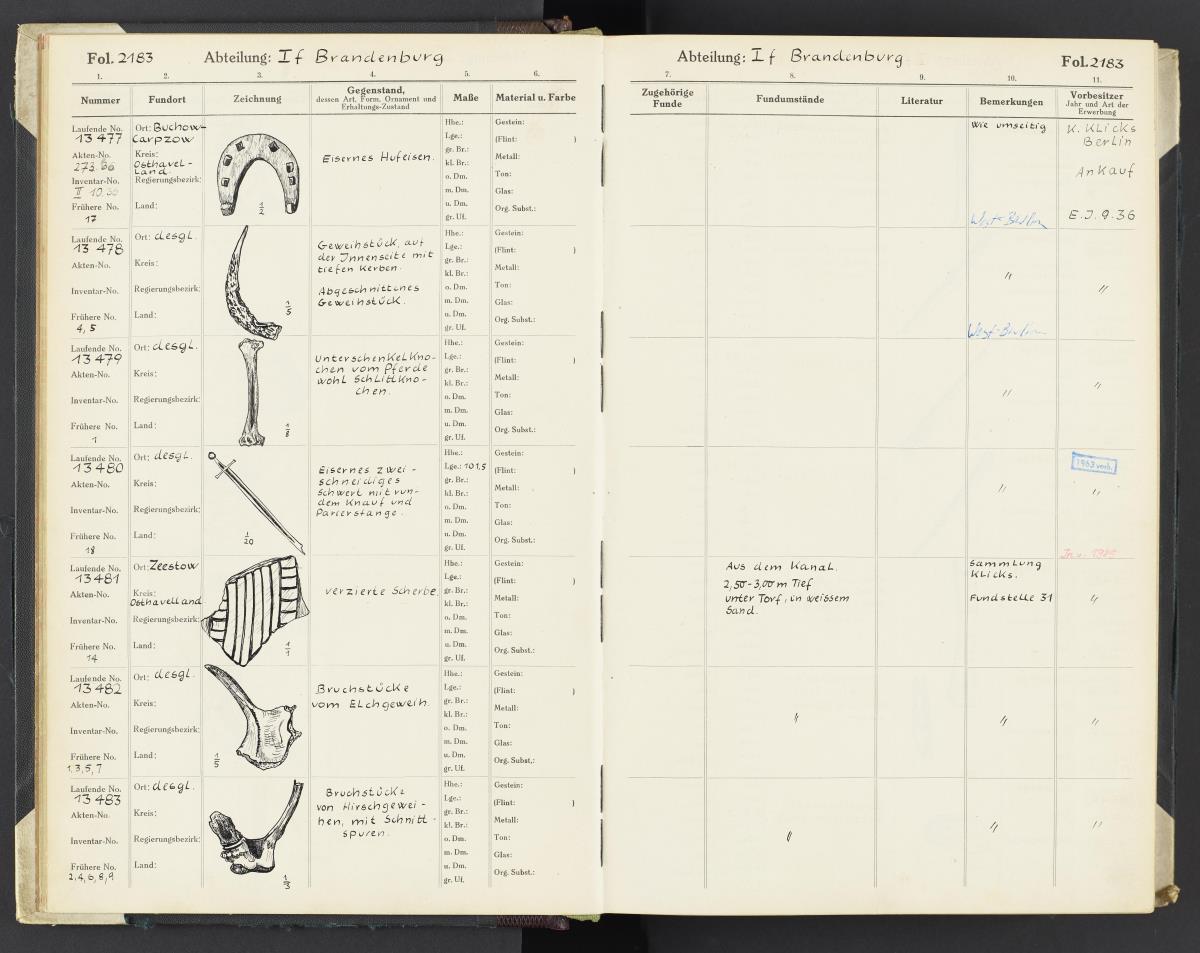 Fol. 2183 Abteilung: If Brandenburg
1. 2. 3. 4. 5. 6.
Nummer Fundort Zeichnung Gegenstand, dessen Art. Form, Ornament und Erhaltungs-Zustand Maße Material u. Farbe
Laufende No. 13 477
Akten-No. 273.36
Inventar-No. II
Frühere No. 17
Ort: Buchow-
Carpzow
Kreis: Osthavel-
land.
Regierungsbezirk:
Land:
1/2
Eisernes Hufeisen.
Hhe.:
Lge.:
gr. Br.:
kl. Br.:
o. Dm.
m. Dm.
u. Dm.
gr. Uf.
Gestein:
(Flint: )
Metall:
Ton:
Glas:
Org. Subst.:
Laufende No. 13 478
Akten-No.
Inventar-No.
Frühere No. 4, 5
Ort: desgl.
Kreis:
Regierungsbezirk:
Land:
1/5
Geweihstück, auf
der Innenseite mit
tiefen Kerben.
Abgeschnittenes
Geweihstück.
Hhe.:
Lge.:
gr. Br.:
kl. Br.:
o. Dm.
m. Dm.
u. Dm.
gr. Uf.
Gestein:
(Flint: )
Metall:
Ton:
Glas:
Org. Subst.:
Laufende No. 13 479
Akten-No.
Inventar-No.
Frühere No. 1
Ort: desgl.
Kreis:
Regierungsbezirk:
Land:
Unterschenkelkno-
chen vom Pferde
wohl Schlittkno-
chen.
Hhe.:
Lge.:
gr. Br.:
kl. Br.:
o. Dm.
m. Dm.
u. Dm.
gr. Uf.
Gestein:
(Flint: )
Metall:
Ton:
Glas:
Org. Subst.:
Laufende No. 13 480
Akten-No.
Inventar-No.
Frühere No. 18
Ort: desgl.
Kreis:
Regierungsbezirk:
Land:
1/20
Eisernes zwei-
schneidiges
Schwert mit run-
dem Knauf und
Parierstange.
Hhe.:
Lge.: 101,5
gr. Br.:
kl. Br.:
o. Dm.
m. Dm.
u. Dm.
gr. Uf.
Gestein:
(Flint: )
Metall:
Ton:
Glas:
Org. Subst.:
Laufende No. 13 481
Akten-No.
Inventar-No.
Frühere No. 14
Ort: Zeestow
Kreis: Osthavelland
Regierungsbezirk:
Land:
1/1
verzierte Scherbe.
Hhe.:
Lge.:
gr. Br.:
kl. Br.:
o. Dm.
m. Dm.
u. Dm.
gr. Uf.
Gestein:
(Flint: )
Metall:
Ton:
Glas:
Org. Subst.:
Laufende No. 13 482
Akten-No.
Inventar-No.
Frühere No. 1, 3, 5, 7
Ort: desgl.
Kreis:
Regierungsbezirk:
Land:
1/5
Bruchstücke
vom Elchgeweih.
Hhe.:
Lge.:
gr. Br.:
kl. Br.:
o. Dm.
m. Dm.
u. Dm.
gr. Uf.
Gestein:
(Flint: )
Metall:
Ton:
Glas:
Org. Subst.:
Laufende No. 13 483
Akten-No.
Inventar-No.
Frühere No. 2, 4, 6, 8, 9
Ort: desgl.
Kreis:
Regierungsbezirk:
Land:
1/3
Bruchstücke
von Hirschgewei-
hen, mit Schnitt-
spuren.
Hhe.:
Lge.:
gr. Br.:
kl. Br.:
o. Dm.
m. Dm.
u. Dm.
gr. Uf.
Gestein:
(Flint: )
Metall:
Ton:
Glas:
Org. Subst.:
Abteilung: If Brandenburg Fol. 2183
7. 8. 9. 10. 11.
Zugehörige Funde Fundumstände Literatur Bemerkungen Vorbesitzer Jahr und Art der Erwerbung
Wie umseitig
West-Berlin
K. Klicks
Berlin
Ankauf
E.J. 9.36
"
West-Berlin
"
"
"
"
1963 vorh.
"
Inv. 1985
Aus dem Kanal.
2,50-3,00 m Tief
unter Torf, in weissem
Sand.
Sammlung
Klicks.
Fundstelle 31
"
"
"
"
"
"
"